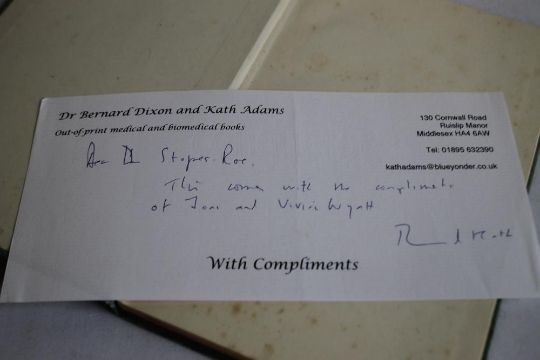 Dr Bernard Dixon and Kath Adams
Out-of-print medical and biomedical books
130 Cornwall Road
Ruislip Manor
Middlesex HA4 6AW
Tel: 01895 632390
kathadams@blueyonder.co.uk
Stopes-Roe.
This comes with the compliments
of Joan and Vivian Wyatt
With Compliments